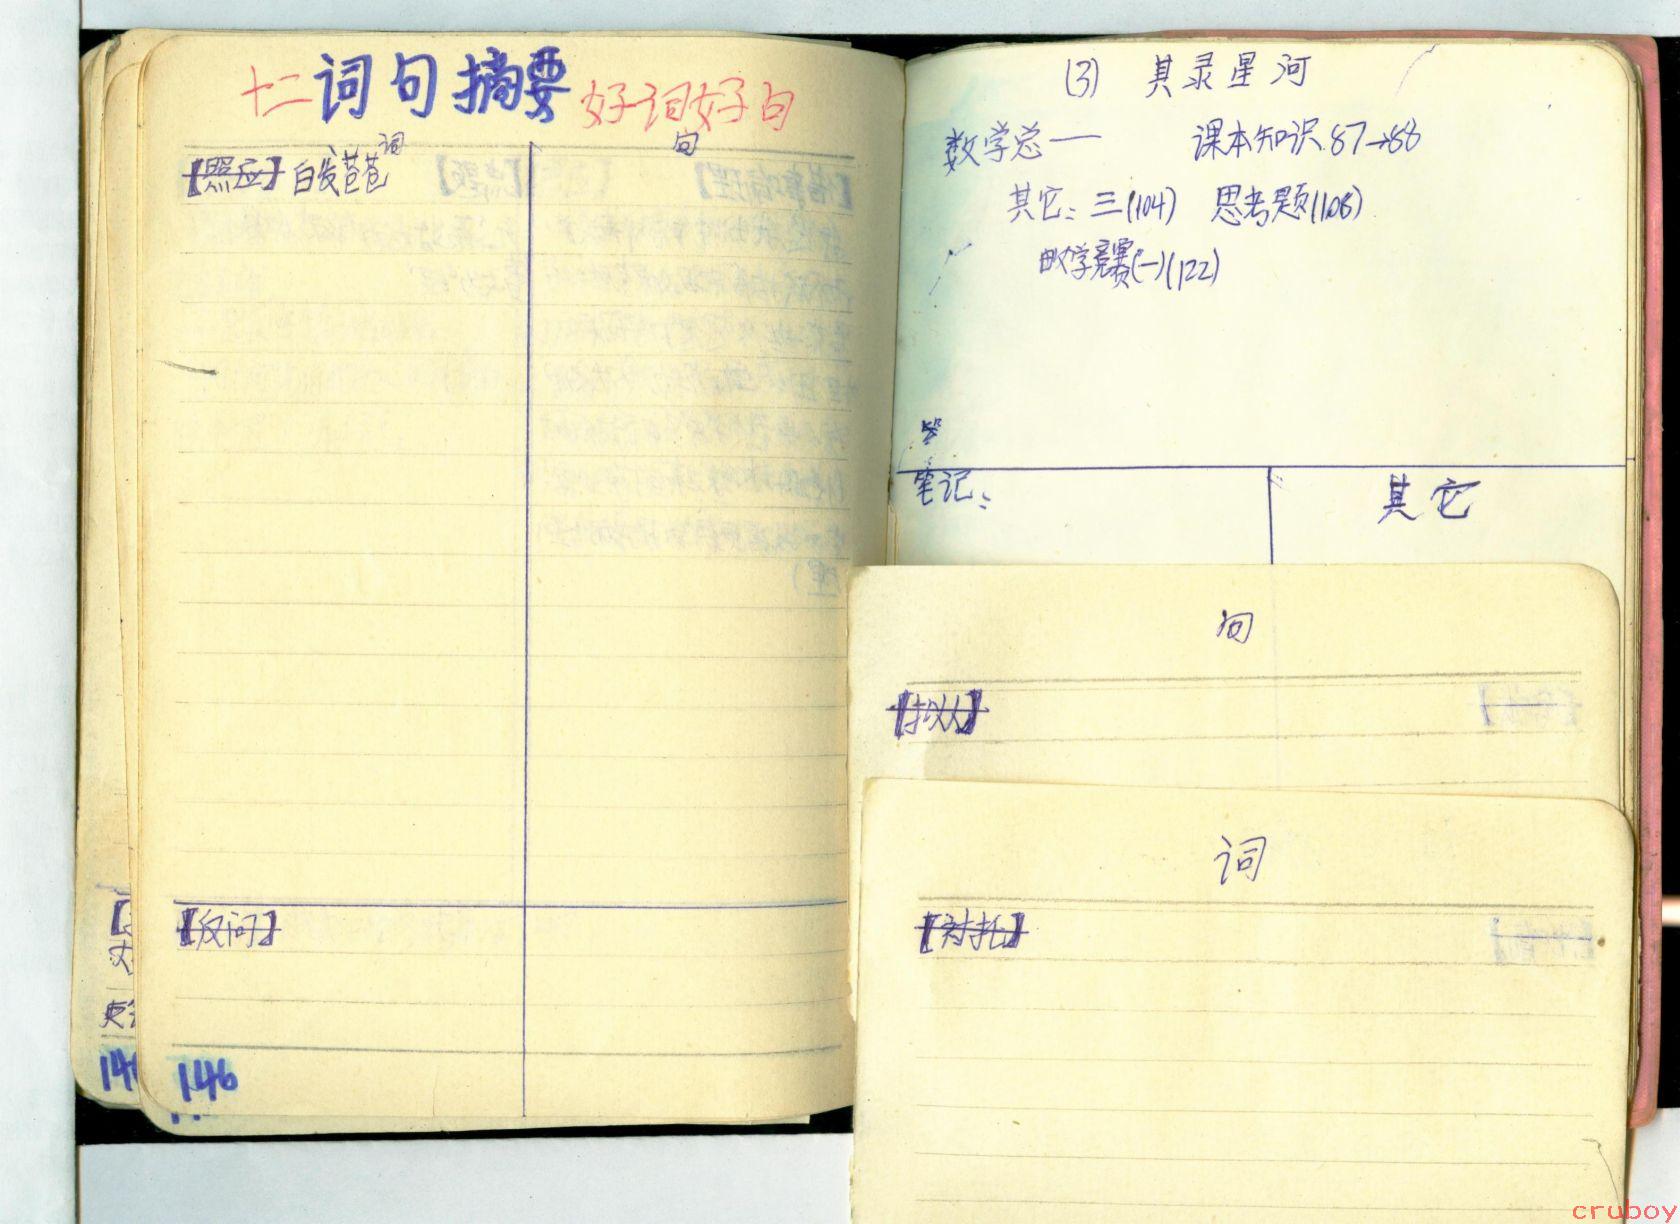 十二 词句摘要 好词好句
词 句
【照应】白发苍苍
【反问】
146
146
(3) 其录星河
数学总一 课本知识 87→88
其它：三(104) 思考题(108)
数学竞赛(一)(122)
笔记： 其它
句
【拟人】
词
【衬托】
cruboy